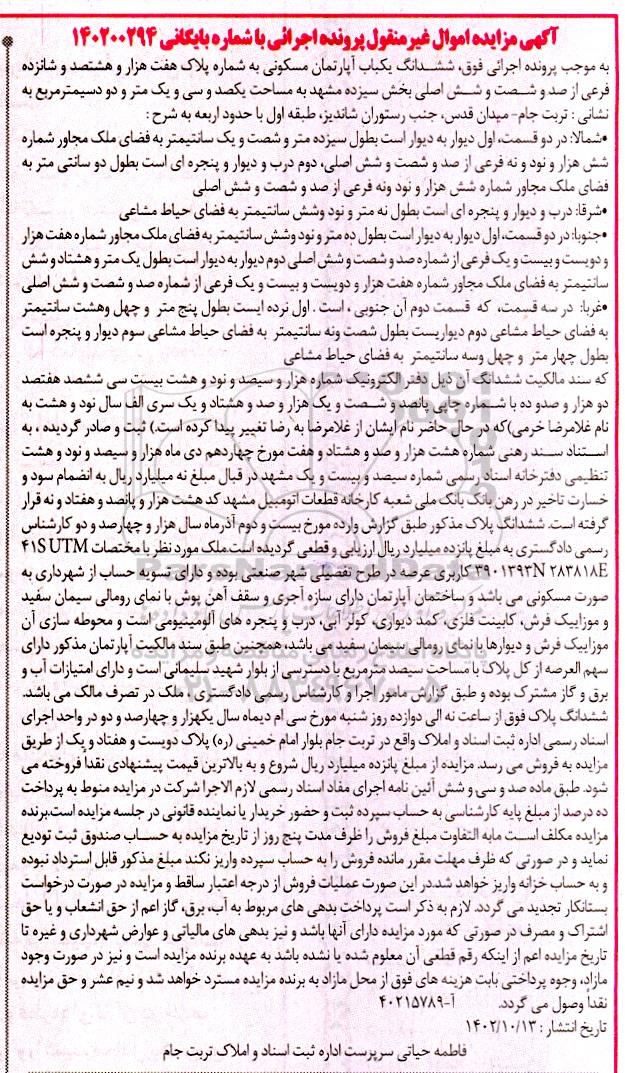 آگهی مزایده اموال غیر منقول پرونده اجرائی با شماره بایگانی ۱۴۰۲۰۰۲۹۴
به موجب پرونده اجرائی فوق، ششدانگ یکباب آپارتمان مسکونی به شماره پلاک هفت هزار و هشتصد و شانزده
فرعی از صد و شصت و شش اصلی بخش سیزده مشهد به مساحت یکصد و سی و یک متر و دو دسیمترمربع به
نشانی : تربت جام- میدان قدس، جنب رستوران شاندیز، طبقه اول با حدود اربعه به شرح :
•شمالا: در دو قسمت، اول دیوار به دیوار است بطول سیزده متر و شصت و یک سانتیمتر به فضای ملک مجاور شماره
شش هزار و نود و نه فرعی از صد و شصت و شش اصلی، دوم درب و دیوار و پنجره ای است بطول دو سانتی متر به
فضای ملک مجاور شماره شش هزار و نود ونه فرعی از صد و شصت و شش اصلی
•شرقا: درب و دیوار و پنجره ای است بطول نه متر و نود وشش سانتیمتر به فضای حیاط مشاعی
•جنوبا: در دو قسمت، اول دیوار به دیوار است بطول ده متر و نود وشش سانتیمتر به فضای ملک مجاور شماره هفت هزار
و دویست و بیست و یک فرعی از شماره صد و شصت و شش اصلی دوم دیوار به دیوار است بطول یک متر و هشتاد و شش
سانتیمتر به فضای ملک مجاور شماره هفت هزار و دویست و بیست و یک فرعی از شماره صد و شصت و شش اصلی
•غربا: در سه قسمت، که قسمت دوم آن جنوبی ، است . اول نرده ایست بطول پنج متر و چهل وهشت سانتیمتر
به فضای حیاط مشاعی دوم دیواریست بطول شصت ونه سانتیمتر به فضای حیاط مشاعی سوم دیوار و پنجره است
بطول چهار متر و چهل وسه سانتیمتر به فضای حیاط مشاعی
که سند مالکیت ششدانگ آن ذیل دفتر الکترونیک شماره هزار و سیصد و نود و هشت بیست سی ششصد هفتصد
دو هزار و صدو ده با شماره چاپی پانصد و شصت و یک هزار و صد و هشتاد و یک سری الف سال نود و هشت به
نام غلامرضا خرمی(که در حال حاضر نام ایشان از غلامرضا به رضا تغییر پیدا کرده است.) ثبت و صادر گردیده ، به
استناد سند رهنی شماره هشت هزار و صد و هشتاد و هفت مورخ چهاردهم دی ماه هزار و سیصد و نود و هشت
تنظیمی دفترخانه اسناد رسمی شماره سیصد و بیست و یک مشهد در قبال مبلغ نه میلیارد ریال به انضمام سود و
خسارت تاخیر در رهن بانک بانک ملی شعبه کارخانه قطعات اتومبیل مشهد کد هشت هزار و پانصد و هفتاد و نه قرار
گرفته است. ششدانگ پلاک مذکور طبق گزارش وارده مورخ بیست و دوم آذرماه سال هزار و چهارصد و دو کارشناس
رسمی دادگستری به مبلغ پانزده میلیارد ریال ارزیابی و قطعی گردیده است.ملک مورد نظر با مختصات ۴۱S UTM
۲۸۳۸۱۸E ۳۹۰۱۳۹۳N کاربری عرصه در طرح تفصیلی شهر صنعتی بوده و دارای تسویه حساب از شهرداری به
صورت مسکونی می باشد و ساختمان آپارتمان دارای سازه آجری و سقف آهن پوش با نمای رومالی سیمان سفید
و موزاییک فرش، کابینت فلزی، کمد دیواری، کولر آبی، درب و پنجره های آلومینیومی است و محوطه سازی آن
موزاییک فرش و دیوارها با نمای رومالی سیمان سفید می باشد، همچنین طبق سند مالکیت آپارتمان مذکور دارای
سهم العرصه از کل پلاک با مساحت سیصد مترمربع با دسترسی از بلوار شهید سلیمانی است و دارای امتیازات آب و
برق و گاز مشترک بوده و طبق گزارش مامور اجرا و کارشناس رسمی دادگستری ، ملک در تصرف مالک می باشد.
ششدانگ پلاک فوق از ساعت نه الی دوازده روز شنبه مورخ سی ام دیماه سال یکهزار و چهارصد و دو در واحد اجرای
اسناد رسمی اداره ثبت اسناد و املاک واقع در تربت جام بلوار امام خمینی (ره) پلاک دویست و هفتاد و یک از طریق
مزایده به فروش می رسد. مزایده از مبلغ پانزده میلیارد ریال شروع و به بالاترین قیمت پیشنهادی نقدا فروخته می
شود. طبق ماده صد و سی و شش آئین نامه اجرای مفاد اسناد رسمی لازم الاجرا شرکت در مزایده منوط به پرداخت
ده درصد از مبلغ پایه کارشناسی به حساب سپرده ثبت و حضور خریدار یا نماینده قانونی در جلسه مزایده است.برنده
مزایده مکلف است مابه التفاوت مبلغ فروش را ظرف مدت پنج روز از تاریخ مزایده به حساب صندوق ثبت تودیع
نماید و در صورتی که ظرف مهلت مقرر مانده فروش را به حساب سپرده واریز نکند مبلغ مذکور قابل استرداد نبوده
و به حساب خزانه واریز خواهد شد.در این صورت عملیات فروش از درجه اعتبار ساقط و مزایده در صورت درخواست
بستانکار تجدید می گردد. لازم به ذکر است پرداخت بدهی های مربوط به آب، برق، گاز اعم از حق انشعاب و یا حق
اشتراک و مصرف در صورتی که مورد مزایده دارای آنها باشد و نیز بدهی های مالیاتی و عوارض شهرداری و غیره تا
تاریخ مزایده اعم از اینکه رقم قطعی آن معلوم شده یا نشده باشد به عهده برنده مزایده است و نیز در صورت وجود
مازاد، وجوه پرداختی بابت هزینه های فوق از محل مازاد به برنده مزایده مسترد خواهد شد و نیم عشر و حق مزایده
نقداً وصول می گردد. آ-۴۰۲۱۵۷۸۹
تاریخ انتشار : ۱۴۰۲/۱۰/۱۳
فاطمه حیاتی سرپرست اداره ثبت اسناد و املاک تربت جام